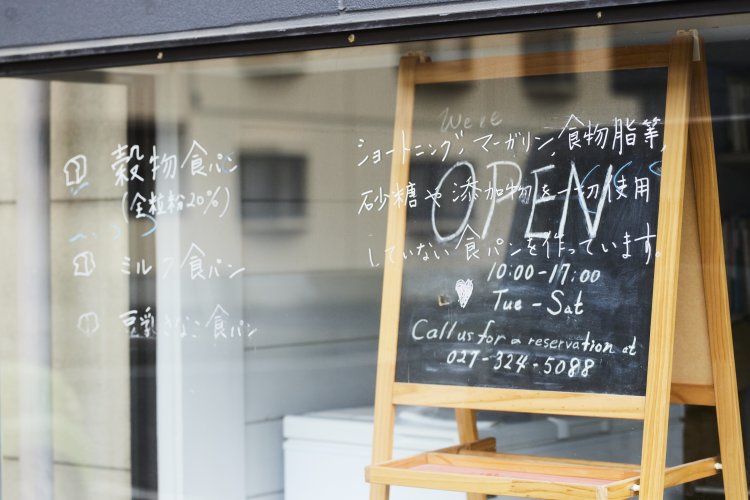 穀物食パン
(全粒粉20%)
ミルク食パン
豆乳きなこ食パン
ショートニング、マーガリン、食物脂等、
砂糖や添加物を一切使用
していない食パンを作っています。
We're
OPEN
10:00-17:00
Tue - Sat
Call us for a reservation at
027-324-5088